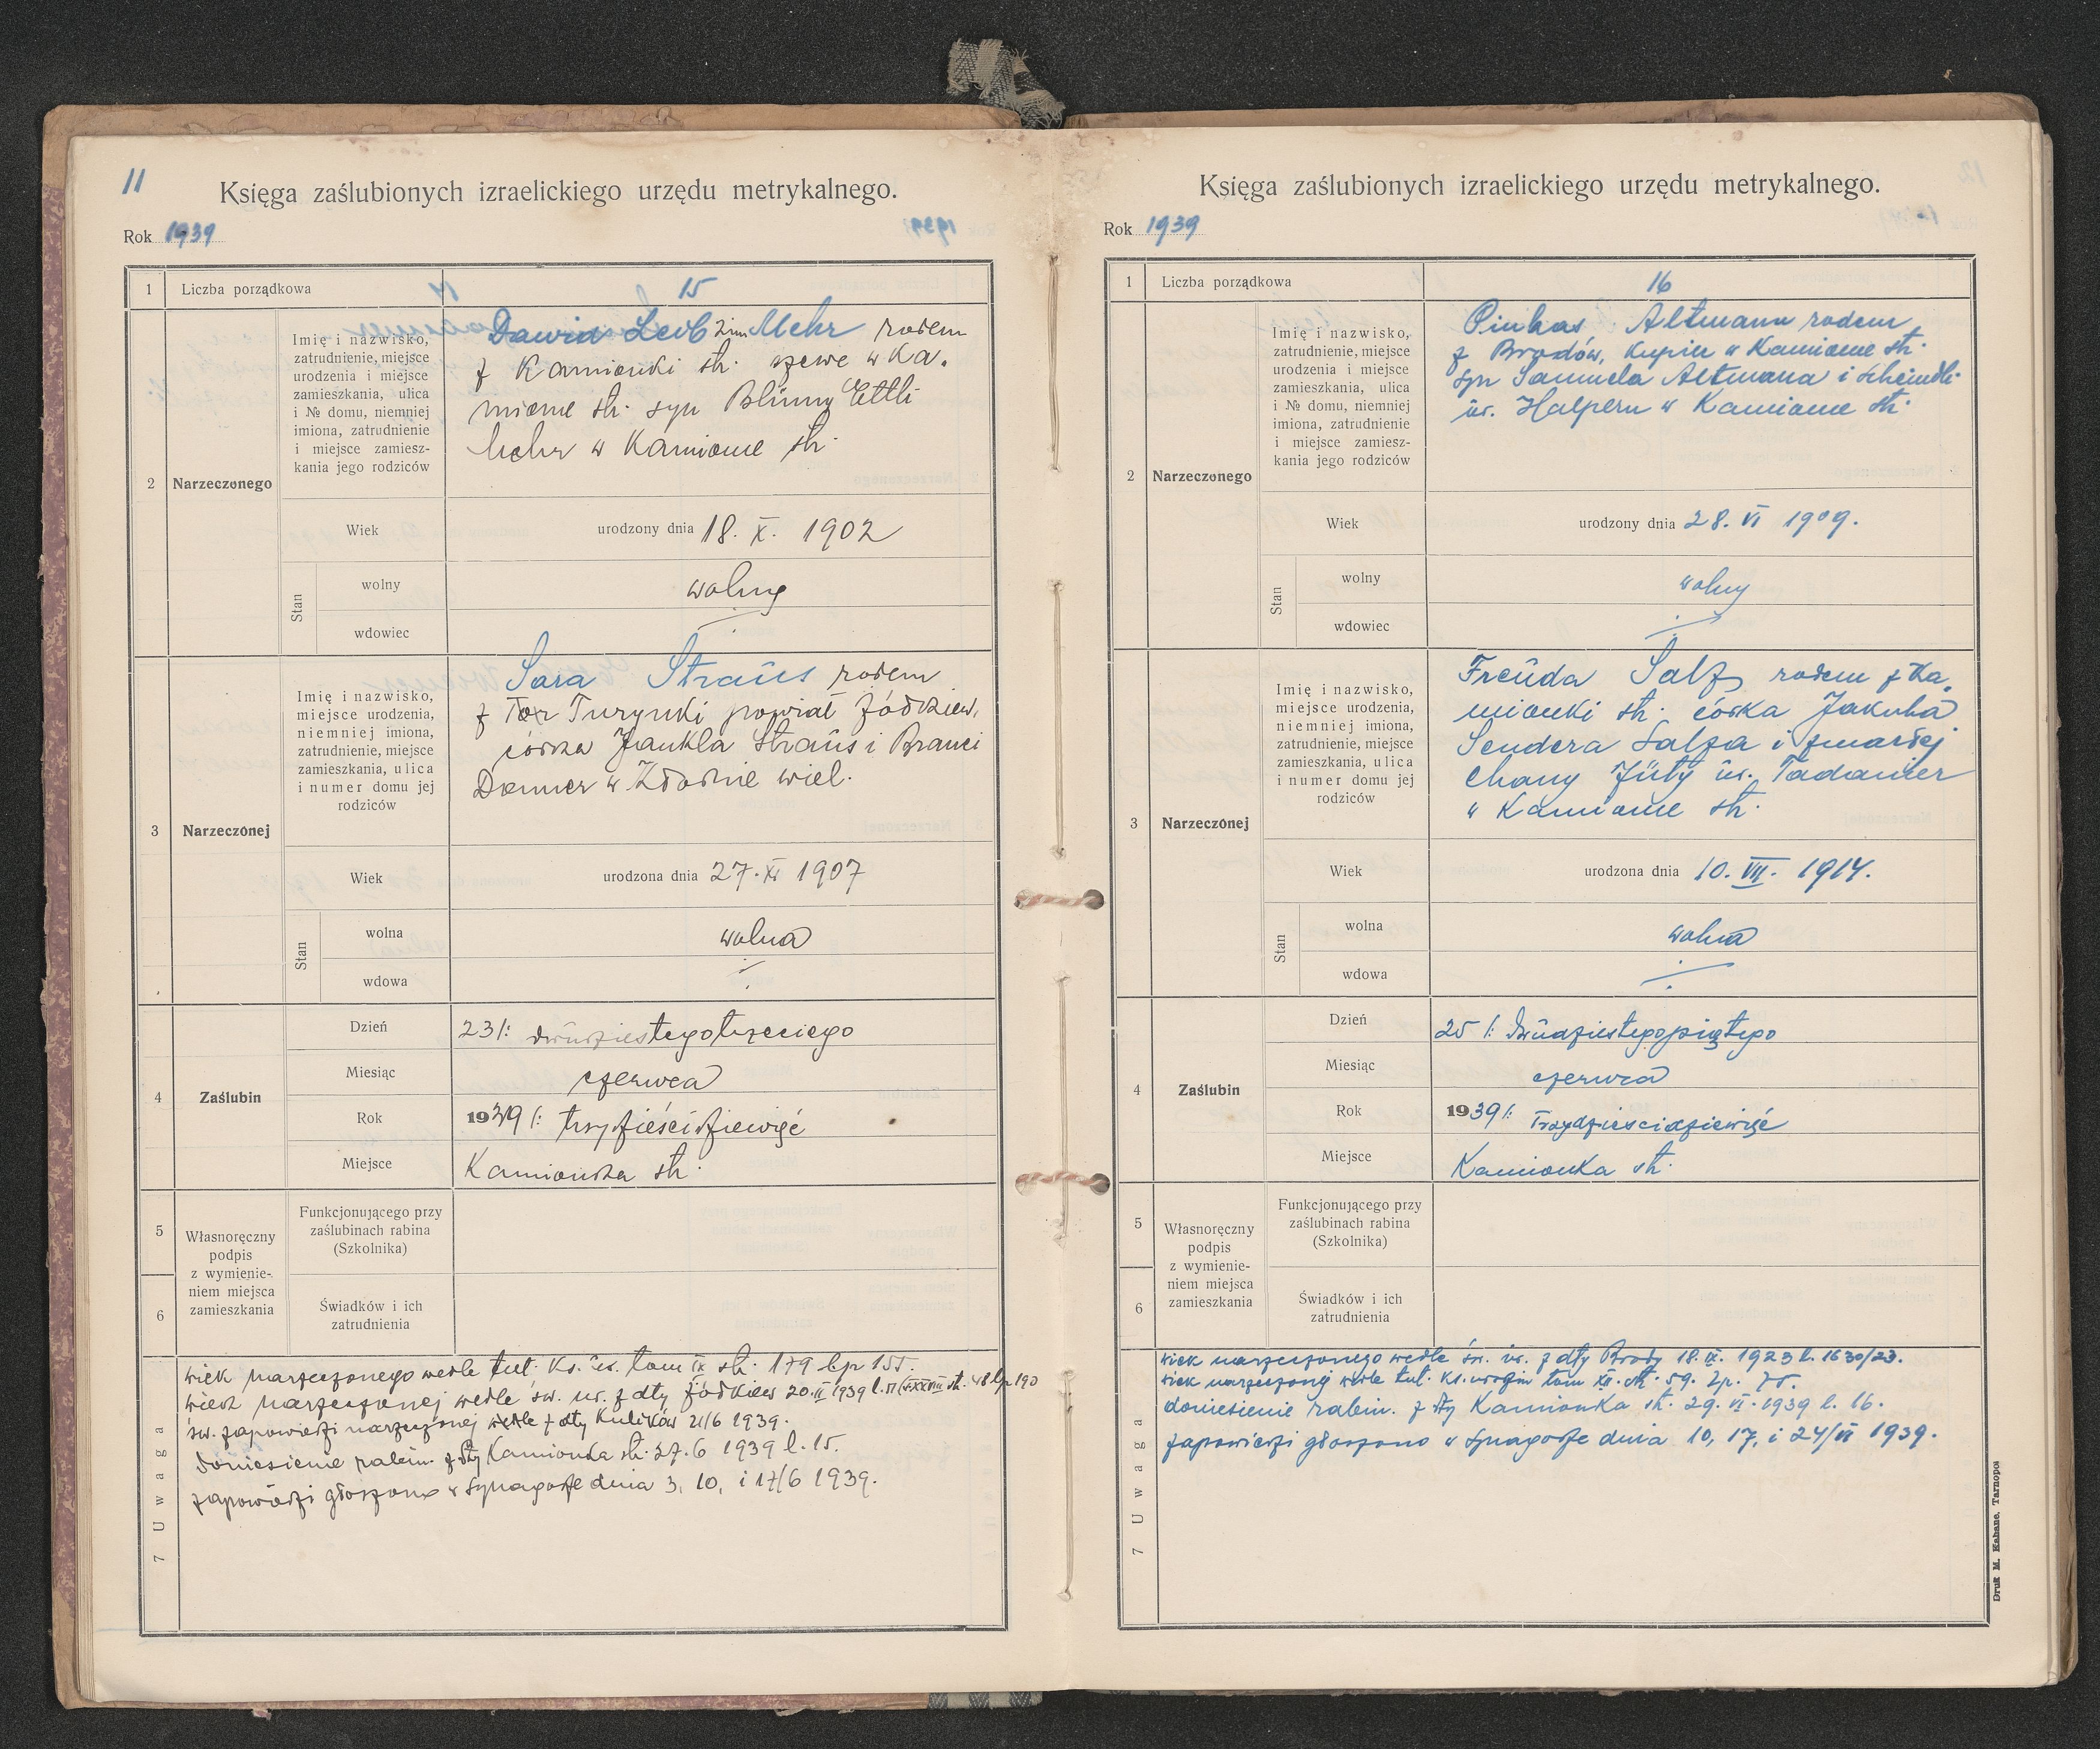 11
Księga zaślubionych izraelickiego urzędu metrykalnego.
Rok 1939
1 Liczba porządkowa 15
2 Narzeczonego
Imię i nazwisko,
zatrudnienie, miejsce
urodzenia i miejsce
zamieszkania, ulica
i № domu, niemniej
imiona, zatrudnienie
i miejsce zamiesz-
kania jego rodziców
Dawid Leib 2 im Mehr rodem
z Kamionki str. szewc w Ka.
mionce str. syn Blimy Ettli
Mehr w Kamionce str.
Wiek urodzony dnia 18. X. 1902
Stan
wolny wolny
wdowiec
3 Narzeczonej
Imię i nazwisko,
miejsce urodzenia,
niemniej imiona,
zatrudnienie, miejsce
zamieszkania, ulica
i numer domu jej
rodziców
Sara Straŭs rodem
z Turynki powiat Żółkiew,
córka Jankla Straŭs i Branci
Donner w Kłodnie wiel.
Wiek urodzona dnia 27. XI 1907
Stan
wolna wolna
wdowa
4 Zaślubin
Dzień 23 /: dwŭdziestegotrzeciego
Miesiąc czerwca
Rok 1939 /: trzydzieścidziewięć
Miejsce Kamionka str.
5
6
Własnoręczny
podpis
z wymienie-
niem miejsca
zamieszkania
Funkcjonującego przy
zaślubinach rabina
(Szkolnika)
Świadków i ich
zatrudnienia
7 Uwaga
wiek narzeczonego wedle tut. Ks. ŭr. tom IX str. 179 lp 155.
wiek narzeczonej wedle św. ur. z dty Żółkiew 20. II 1939 str. 48 lp 190
św. zapowiedzi narzeczonej wedle z dty Kulików 21/6 1939.
doniesienie rabin. z dty Kamionka str. 27. 6 1939 l. 15.
zapowiedzi głoszono w Synagodze dnia 3, 10, i 17/6 1939.
Księga zaślubionych izraelickiego urzędu metrykalnego.
Rok 1939
1 Liczba porządkowa 16
2 Narzeczonego
Imię i nazwisko,
zatrudnienie, miejsce
urodzenia i miejsce
zamieszkania, ulica
i № domu, niemniej
imiona, zatrudnienie
i miejsce zamiesz-
kania jego rodziców
Pinkas Altmann rodem
z Brodów, kupiec w Kamionce str.
syn Samuela Altmana i Scheindli
ŭr. Halpern w Kamionce str.
Wiek urodzony dnia 28. VI 1909.
Stan
wolny wolny
wdowiec
3 Narzeczonej
Imię i nazwisko,
miejsce urodzenia,
niemniej imiona,
zatrudnienie, miejsce
zamieszkania, ulica
i numer domu jej
rodziców
Freŭda Salz rodem z Ka.
mionki str. córka Jakuba
Sendera Salza i zmarłej
Chany Jŭty ŭr. Tadanier
w Kamionce str.
Wiek urodzona dnia 10. VII. 1914.
Stan
wolna wolna
wdowa
4 Zaślubin
Dzień 25 /: dwŭdziestegopiątego
Miesiąc czerwca
Rok 1939 /: Trzydzieścidziewięć
Miejsce Kamionka str.
5
6
Własnoręczny
podpis
z wymienie-
niem miejsca
zamieszkania
Funkcjonującego przy
zaślubinach rabina
(Szkolnika)
Świadków i ich
zatrudnienia
7 Uwaga
wiek narzeczonego wedle św. ŭr. z dty Brody 18. IX. 1923 l. 1630/23.
wiek narzeczonej wedle tut. Ks. urodzin tom XII. str. 59. lp. 75.
doniesienie rabin. z dty Kamionka str. 29. VI. 1939 l. 16.
zapowiedzi głoszono w Synagodze dnia 10, 17, i 24/VI 1939.
Druk M. Kahane, Tarnopol